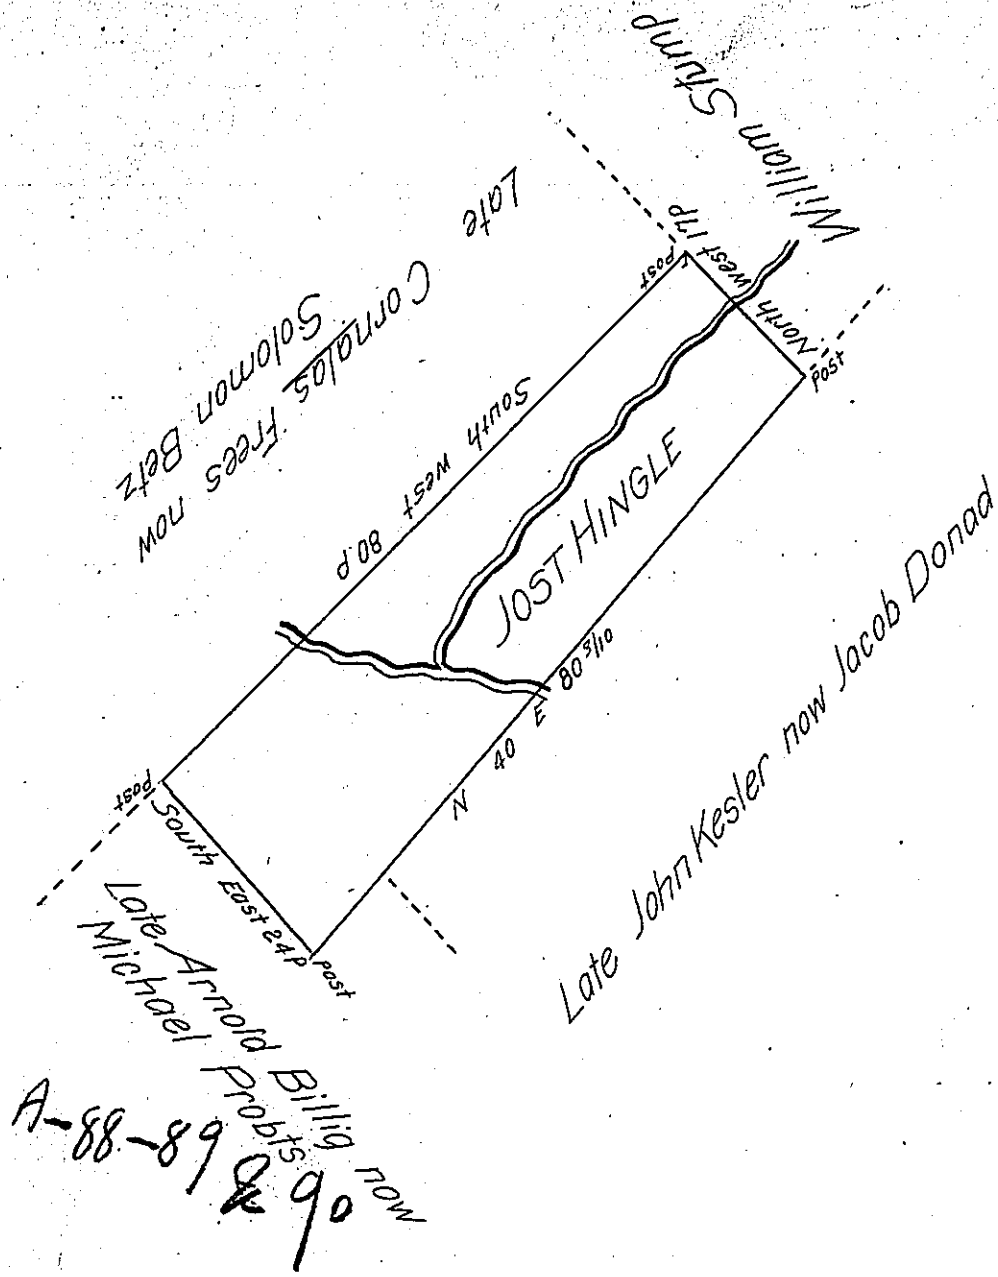 William Stump
Late
Cornalas Frees now
Solomon Betz
Post
West 17P
North
Post
South west 80.P
JOST HINGLE
N 40 E 80 3/10
Late John Kesler now Jacob Donad
Post
South East 24P
Post
Late Arnold Billig now
Michael Probts
A-88-89 & 90